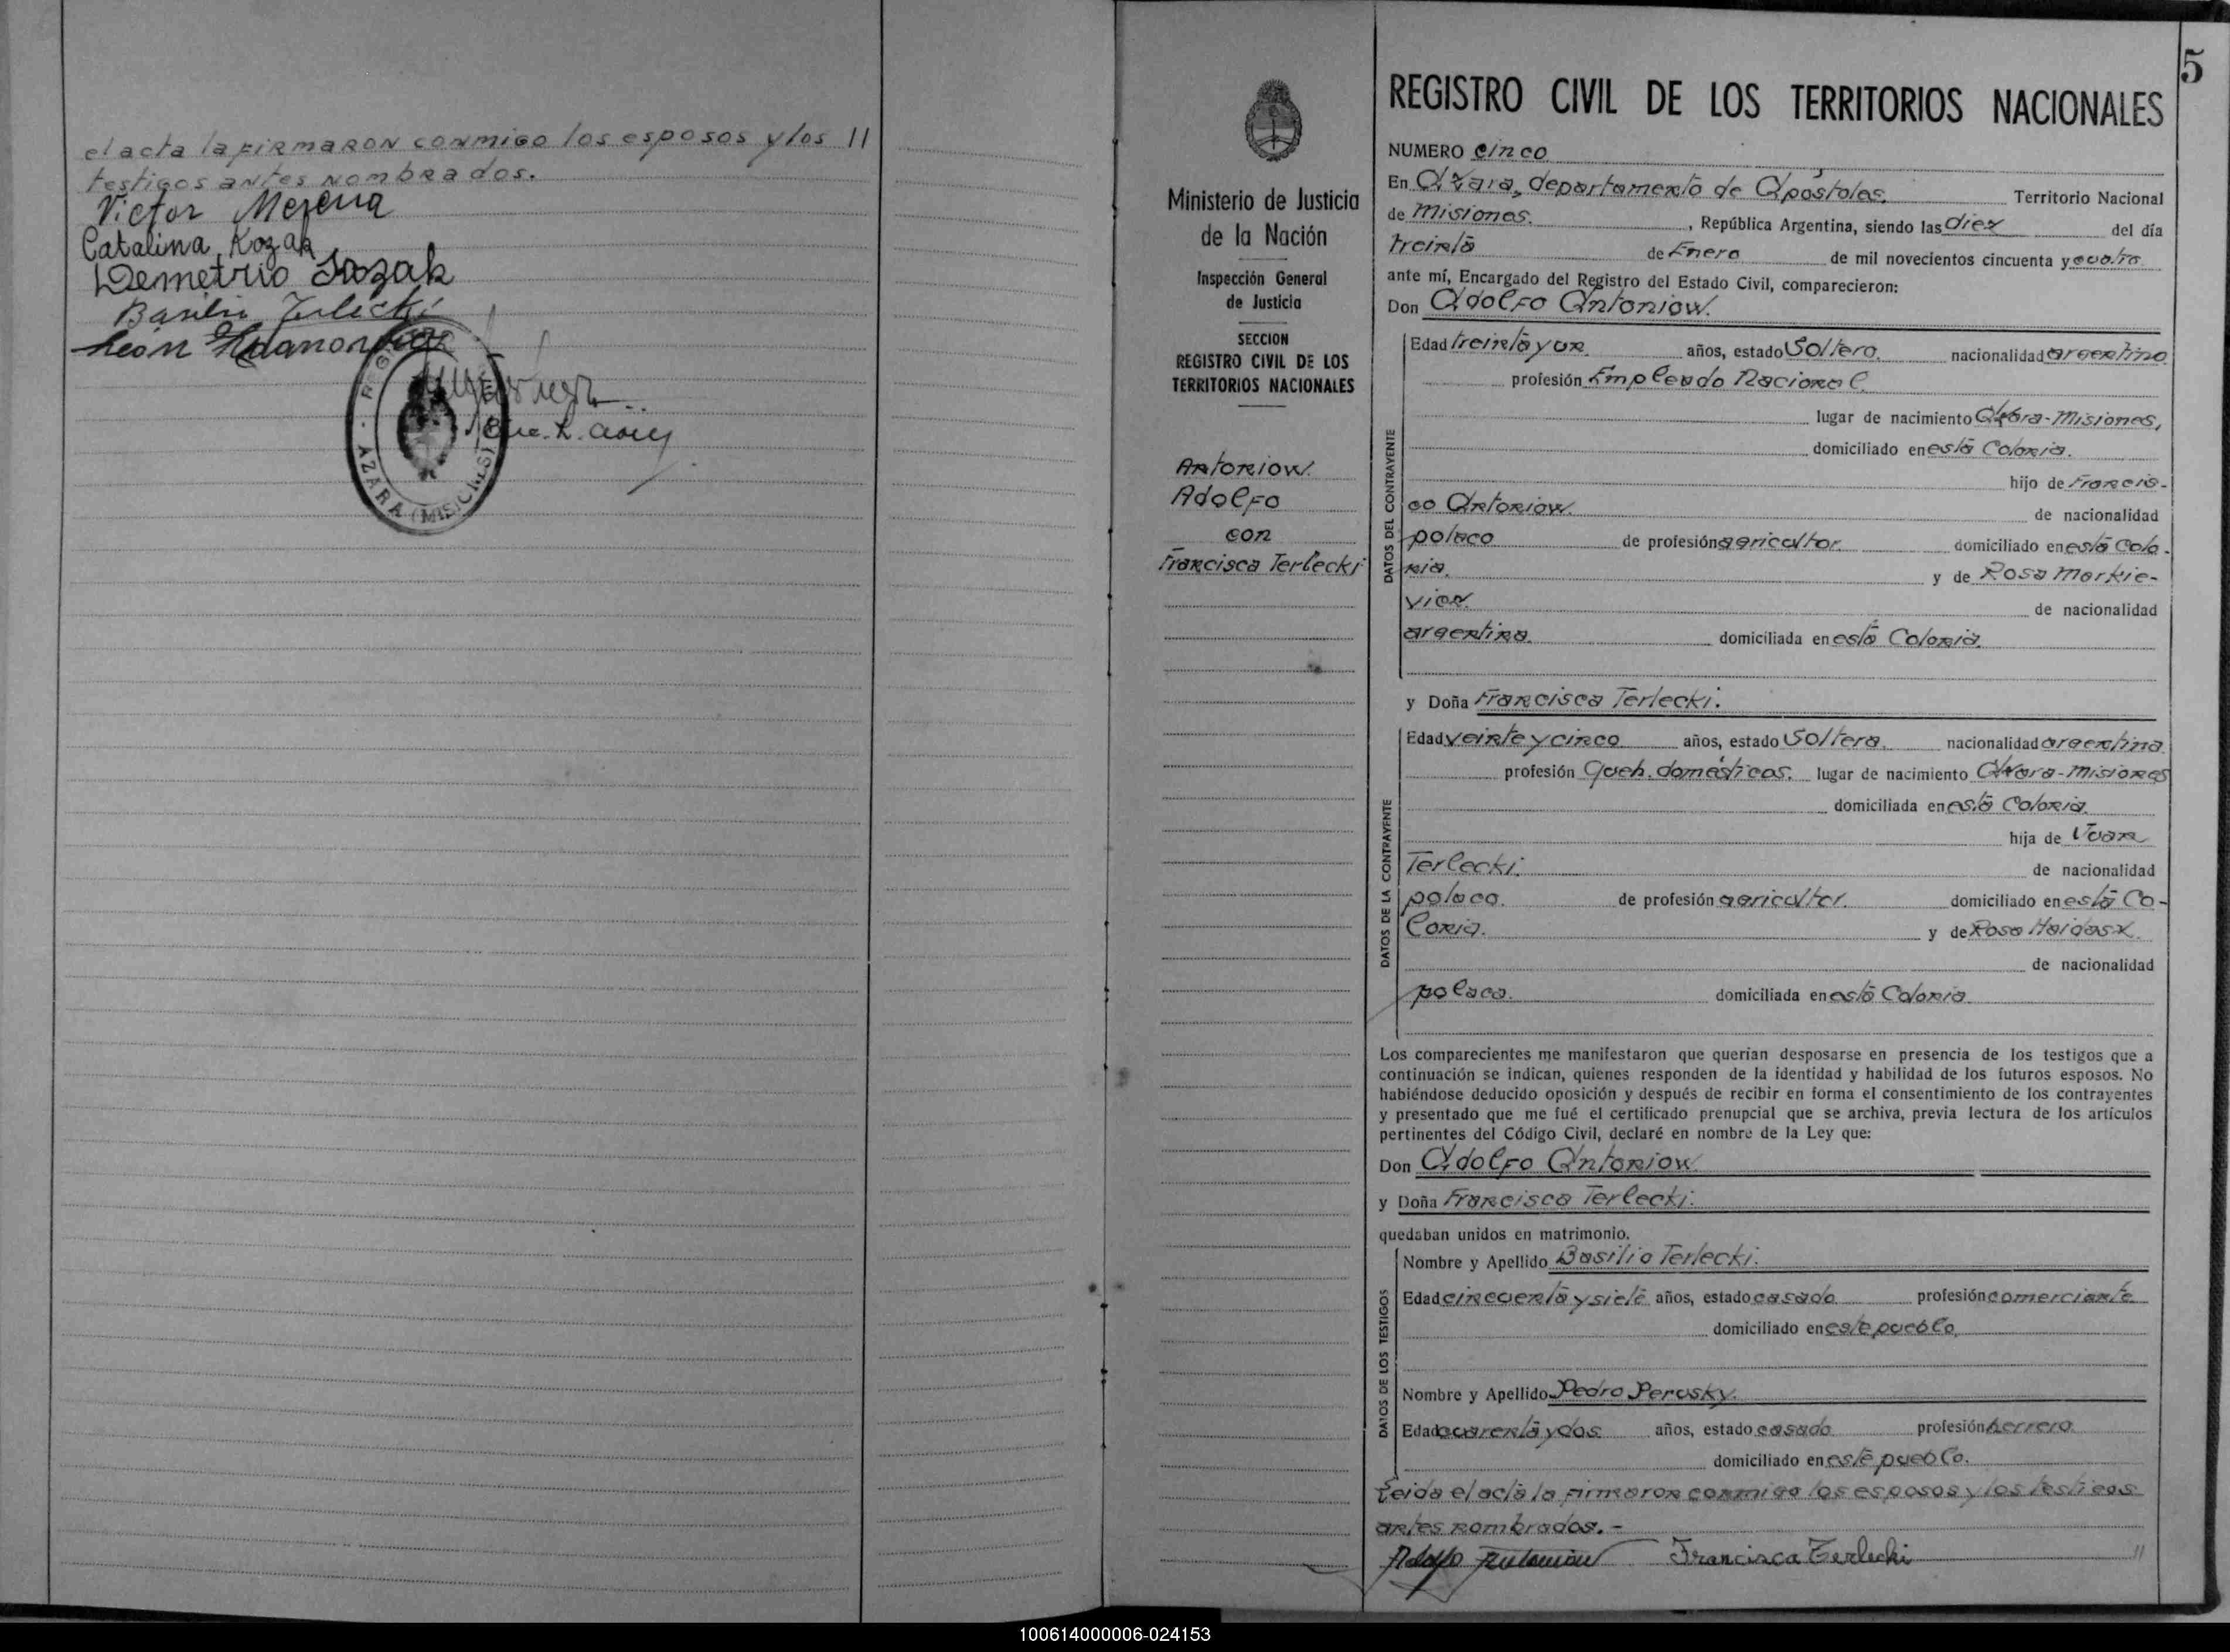 el acta la firmaron conmigo los esposos y los //
testigos antes nombrados.
Victor
Catalina Kozak
Demetrio Sozak
Basilio Terlecki
León
AZARA (MISIONES)
5
Ministerio de Justicia
de la Nación
Inspección General
de Justicia
SECCION
REGISTRO CIVIL DE LOS
TERRITORIOS NACIONALES
Antoniow.
Adolfo
con
Francisca Terlecki
REGISTRO CIVIL DE LOS TERRITORIOS NACIONALES
NUMERO cinco
En Azara, departamento de Apóstoles. Territorio Nacional
de Misiones. , República Argentina, siendo las diez del día
treinta de Enero de mil novecientos cincuenta y cuatro
ante mí, Encargado del Registro del Estado Civil, comparecieron:
Don Adolfo Antoniow.
DATOS DEL CONTRAYENTE
Edad treinta y un años, estado Soltero. nacionalidad argentino
profesión Empleado Nacional.
lugar de nacimiento Azara-Misiones,
domiciliado en esta Colonia.
hijo de Francis-
co Antoniow. de nacionalidad
polaco de profesión agricultor. domiciliado en esta Colo-
nia. y de Rosa Markie-
vicz. de nacionalidad
argentina. domiciliada en esta Colonia.
y Doña Francisca Terlecki.
DATOS DE LA CONTRAYENTE
Edad veinte y cinco años, estado Soltera. nacionalidad argentina.
profesión Queh. domésticos. lugar de nacimiento Azara-Misiones
domiciliada en esta Colonia.
hija de Juan
Terlecki. de nacionalidad
polaco. de profesión agricultor. domiciliado en esta Co-
lonia. y de Rosa Haidasz.
de nacionalidad
polaca. domiciliada en esta Colonia.
Los comparecientes me manifestaron que querían desposarse en presencia de los testigos que a
continuación se indican, quienes responden de la identidad y habilidad de los futuros esposos. No
habiéndose deducido oposición y después de recibir en forma el consentimiento de los contrayentes
y presentado que me fué el certificado prenupcial que se archiva, previa lectura de los artículos
pertinentes del Código Civil, declaré en nombre de la Ley que:
Don Adolfo Antoniow.
y Doña Francisca Terlecki.
quedaban unidos en matrimonio.
DATOS DE LOS TESTIGOS
Nombre y Apellido Basilio Terlecki.
Edad cincuenta y siete años, estado casado profesión comerciante
domiciliado en este pueblo.
Nombre y Apellido Pedro Perusky.
Edad cuarenta y dos años, estado casado profesión herrero.
domiciliado en este pueblo.
Leida el acta la firmaron conmigo los esposos y los testigos
antes nombrados.-
Adolfo Antoniow Francisca Terlecki //
100614000006-024153